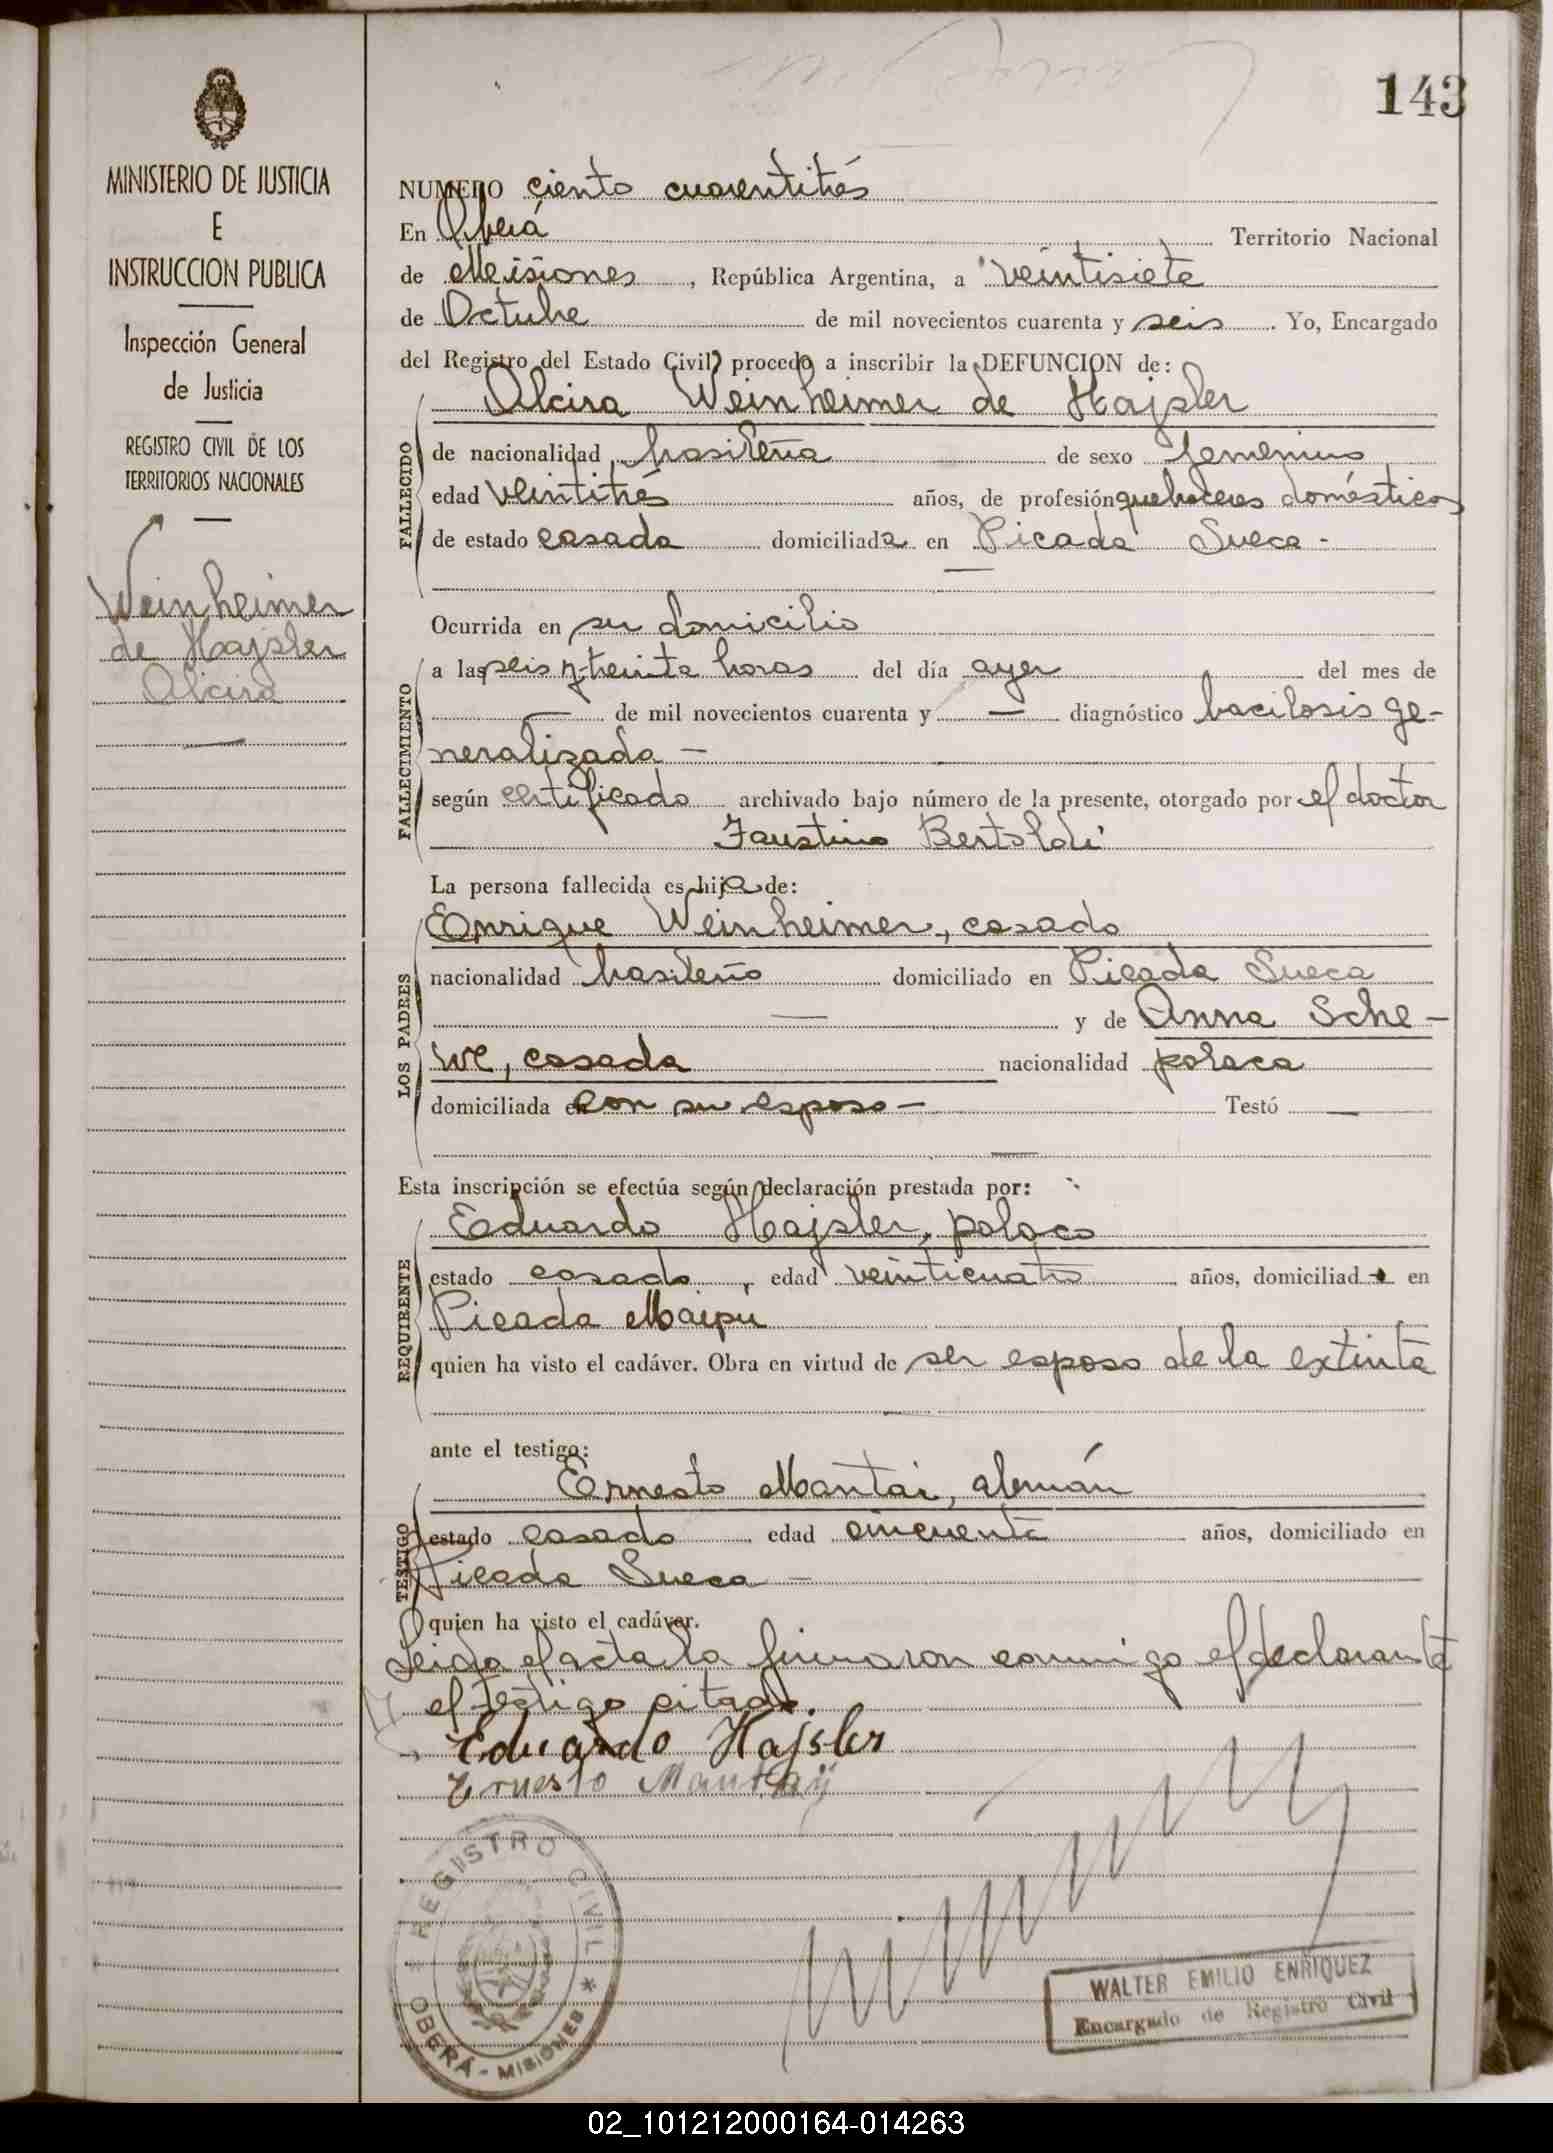 143
MINISTERIO DE JUSTICIA
E
INSTRUCCION PUBLICA
Inspección General
de Justicia
REGISTRO CIVIL DE LOS
TERRITORIOS NACIONALES
Weinheimer
de Hajsler
Alcira
NUMERO ciento cuarentitrés
En Oberá Territorio Nacional
de Misiones, República Argentina, a veintisiete
de Octubre de mil novecientos cuarenta y seis. Yo, Encargado
del Registro del Estado Civil, procedo a inscribir la DEFUNCION de:
Alcira Weinheimer de Hajsler
FALLECIDO
de nacionalidad brasileña de sexo femenino
edad veintitrés años, de profesión quehaceres domésticos
de estado casada domiciliada en Picada Sueca -
Ocurrida en su domicilio
FALLECIMIENTO
a las seis y treinta horas del día ayer del mes de
— de mil novecientos cuarenta y — diagnóstico bacilosis ge-
neralizada —
según certificado archivado bajo número de la presente, otorgado por el doctor
Faustino Bertoldi
La persona fallecida es hija de:
LOS PADRES
Enrique Weinheimer, casado
nacionalidad brasileño domiciliado en Picada Sueca
— y de Anna Sche-
we, casada nacionalidad polaca
domiciliada en con su esposo — Testó —
Esta inscripción se efectúa según declaración prestada por:
REQUIRENTE
Eduardo Hajsler, polaco
estado casado, edad veinticuatro años, domiciliado en
Picada Maipú
quien ha visto el cadáver. Obra en virtud de ser esposo de la extinta
ante el testigo:
TESTIGO
Ernesto Mantai, alemán
estado casado edad cincuenta años, domiciliado en
Picada Sueca —
quien ha visto el cadáver.
Leida el acta la firmaron conmigo el declarante
y el testigo citado.
Eduardo Hajsler
Ernesto Mantaÿ
REGISTRO CIVIL
* OBERÁ - MISIONES *
WALTER EMILIO ENRIQUEZ
Encargado de Registro Civil
02_101212000164-014263